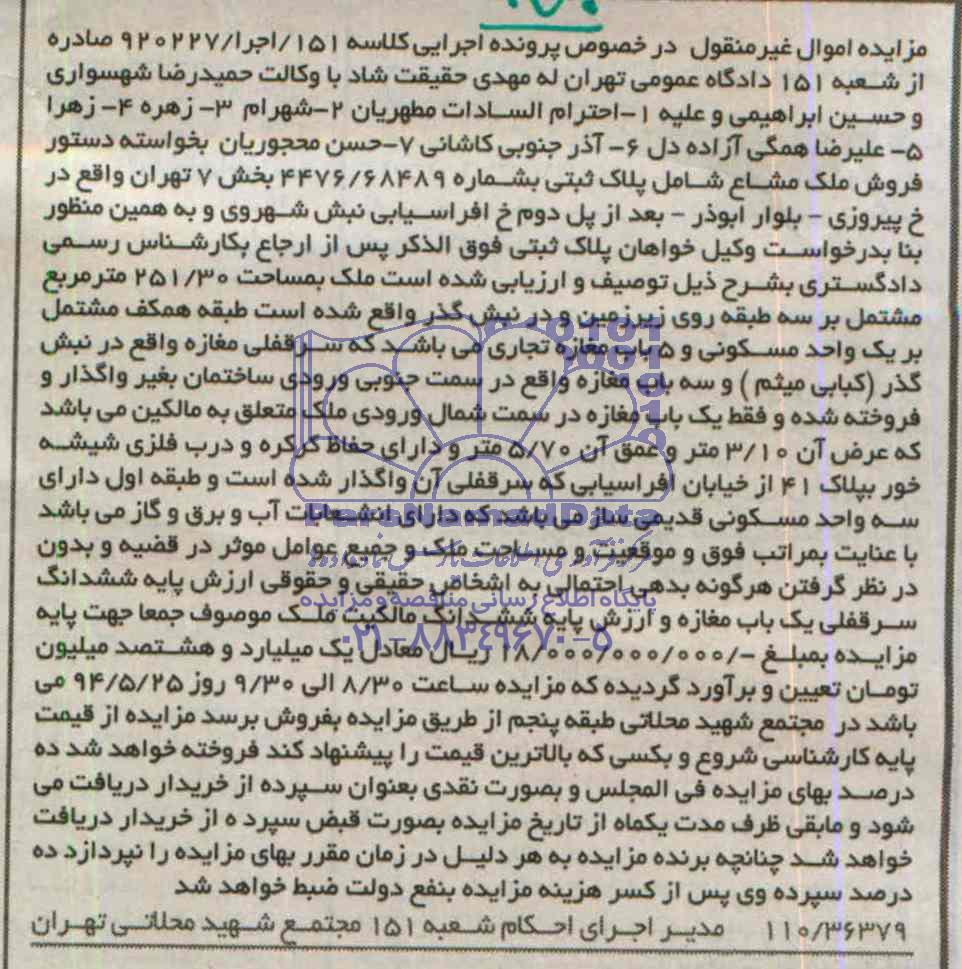 مزایده اموال غیرمنقول در خصوص پرونده اجرایی کلاسه ۱۵۱/اجرا/۹۲۰۲۲۷ صادره
از شعبه ۱۵۱ دادگاه عمومی تهران له مهدی حقیقت شاد با وکالت حمیدرضا شهسواری
و حسین ابراهیمی و علیه ۱-احترام السادات مطهریان ۲-شهرام ۳- زهره ۴- زهرا
۵- علیرضا همگی آزاده دل ۶- آذر جنوبی کاشانی ۷-حسن محجوریان بخواسته دستور
فروش ملک مشاع شامل پلاک ثبتی بشماره ۴۴۷۶/۶۸۴۸۹ بخش ۷ تهران واقع در
خ پیروزی - بلوار ابوذر - بعد از پل دوم خ افراسیابی نبش شهروی و به همین منظور
بنا بدرخواست وکیل خواهان پلاک ثبتی فوق الذکر پس از ارجاع بکارشناس رسمی
دادگستری بشرح ذیل توصیف و ارزیابی شده است ملک بمساحت ۲۵۱/۳۰ مترمربع
مشتمل بر سه طبقه روی زیرزمین و در نبش گذر واقع شده است طبقه همکف مشتمل
بر یک واحد مسکونی و ۵ باب مغازه تجاری می باشد که سرقفلی مغازه واقع در نبش
گذر (کبابی میثم ) و سه باب مغازه واقع در سمت جنوبی ورودی ساختمان بغیر واگذار و
فروخته شده و فقط یک باب مغازه در سمت شمال ورودی ملک متعلق به مالکین می باشد
که عرض آن ۳/۱۰ متر و عمق آن ۵/۷۰ متر و دارای حفاظ کرکره و درب فلزی شیشه
خور بپلاک ۴۱ از خیابان افراسیابی که سرقفلی آن واگذار شده است و طبقه اول دارای
سه واحد مسکونی قدیمی ساز می باشد که دارای انشعابات آب و برق و گاز می باشد
با عنایت بمراتب فوق و موقعیت و مساحت ملک و جمیع عوامل موثر در قضیه و بدون
در نظر گرفتن هرگونه بدهی احتمالی به اشخاص حقیقی و حقوقی ارزش پایه ششدانگ
پایگاه اطلاع رسانی مناقصه و مزایده
سرقفلی یک باب مغازه و ارزش پایه ششدانگ مالکیت ملک موصوف جمعا جهت پایه
۰۲۱-۸۸۳۴۹۶۷۰-۵
مزایده بمبلغ -/۱۸/۰۰۰/۰۰۰/۰۰۰ ریال معادل یک میلیارد و هشتصد میلیون
تومان تعیین و برآورد گردیده که مزایده ساعت ۸/۳۰ الی ۹/۳۰ روز ۹۴/۵/۲۵ می
باشد در مجتمع شهید محلاتی طبقه پنجم از طریق مزایده بفروش برسد مزایده از قیمت
پایه کارشناسی شروع و بکسی که بالاترین قیمت را پیشنهاد کند فروخته خواهد شد ده
درصد بهای مزایده فی المجلس و بصورت نقدی بعنوان سپرده از خریدار دریافت می
شود و مابقی ظرف مدت یکماه از تاریخ مزایده بصورت قبض سپرد ه از خریدار دریافت
خواهد شد چنانچه برنده مزایده به هر دلیل در زمان مقرر بهای مزایده را نپردازد ده
درصد سپرده وی پس از کسر هزینه مزایده بنفع دولت ضبط خواهد شد
۱۱۰/۳۶۳۷۹ مدیر اجرای احکام شعبه ۱۵۱ مجتمع شهید محلاتی تهران